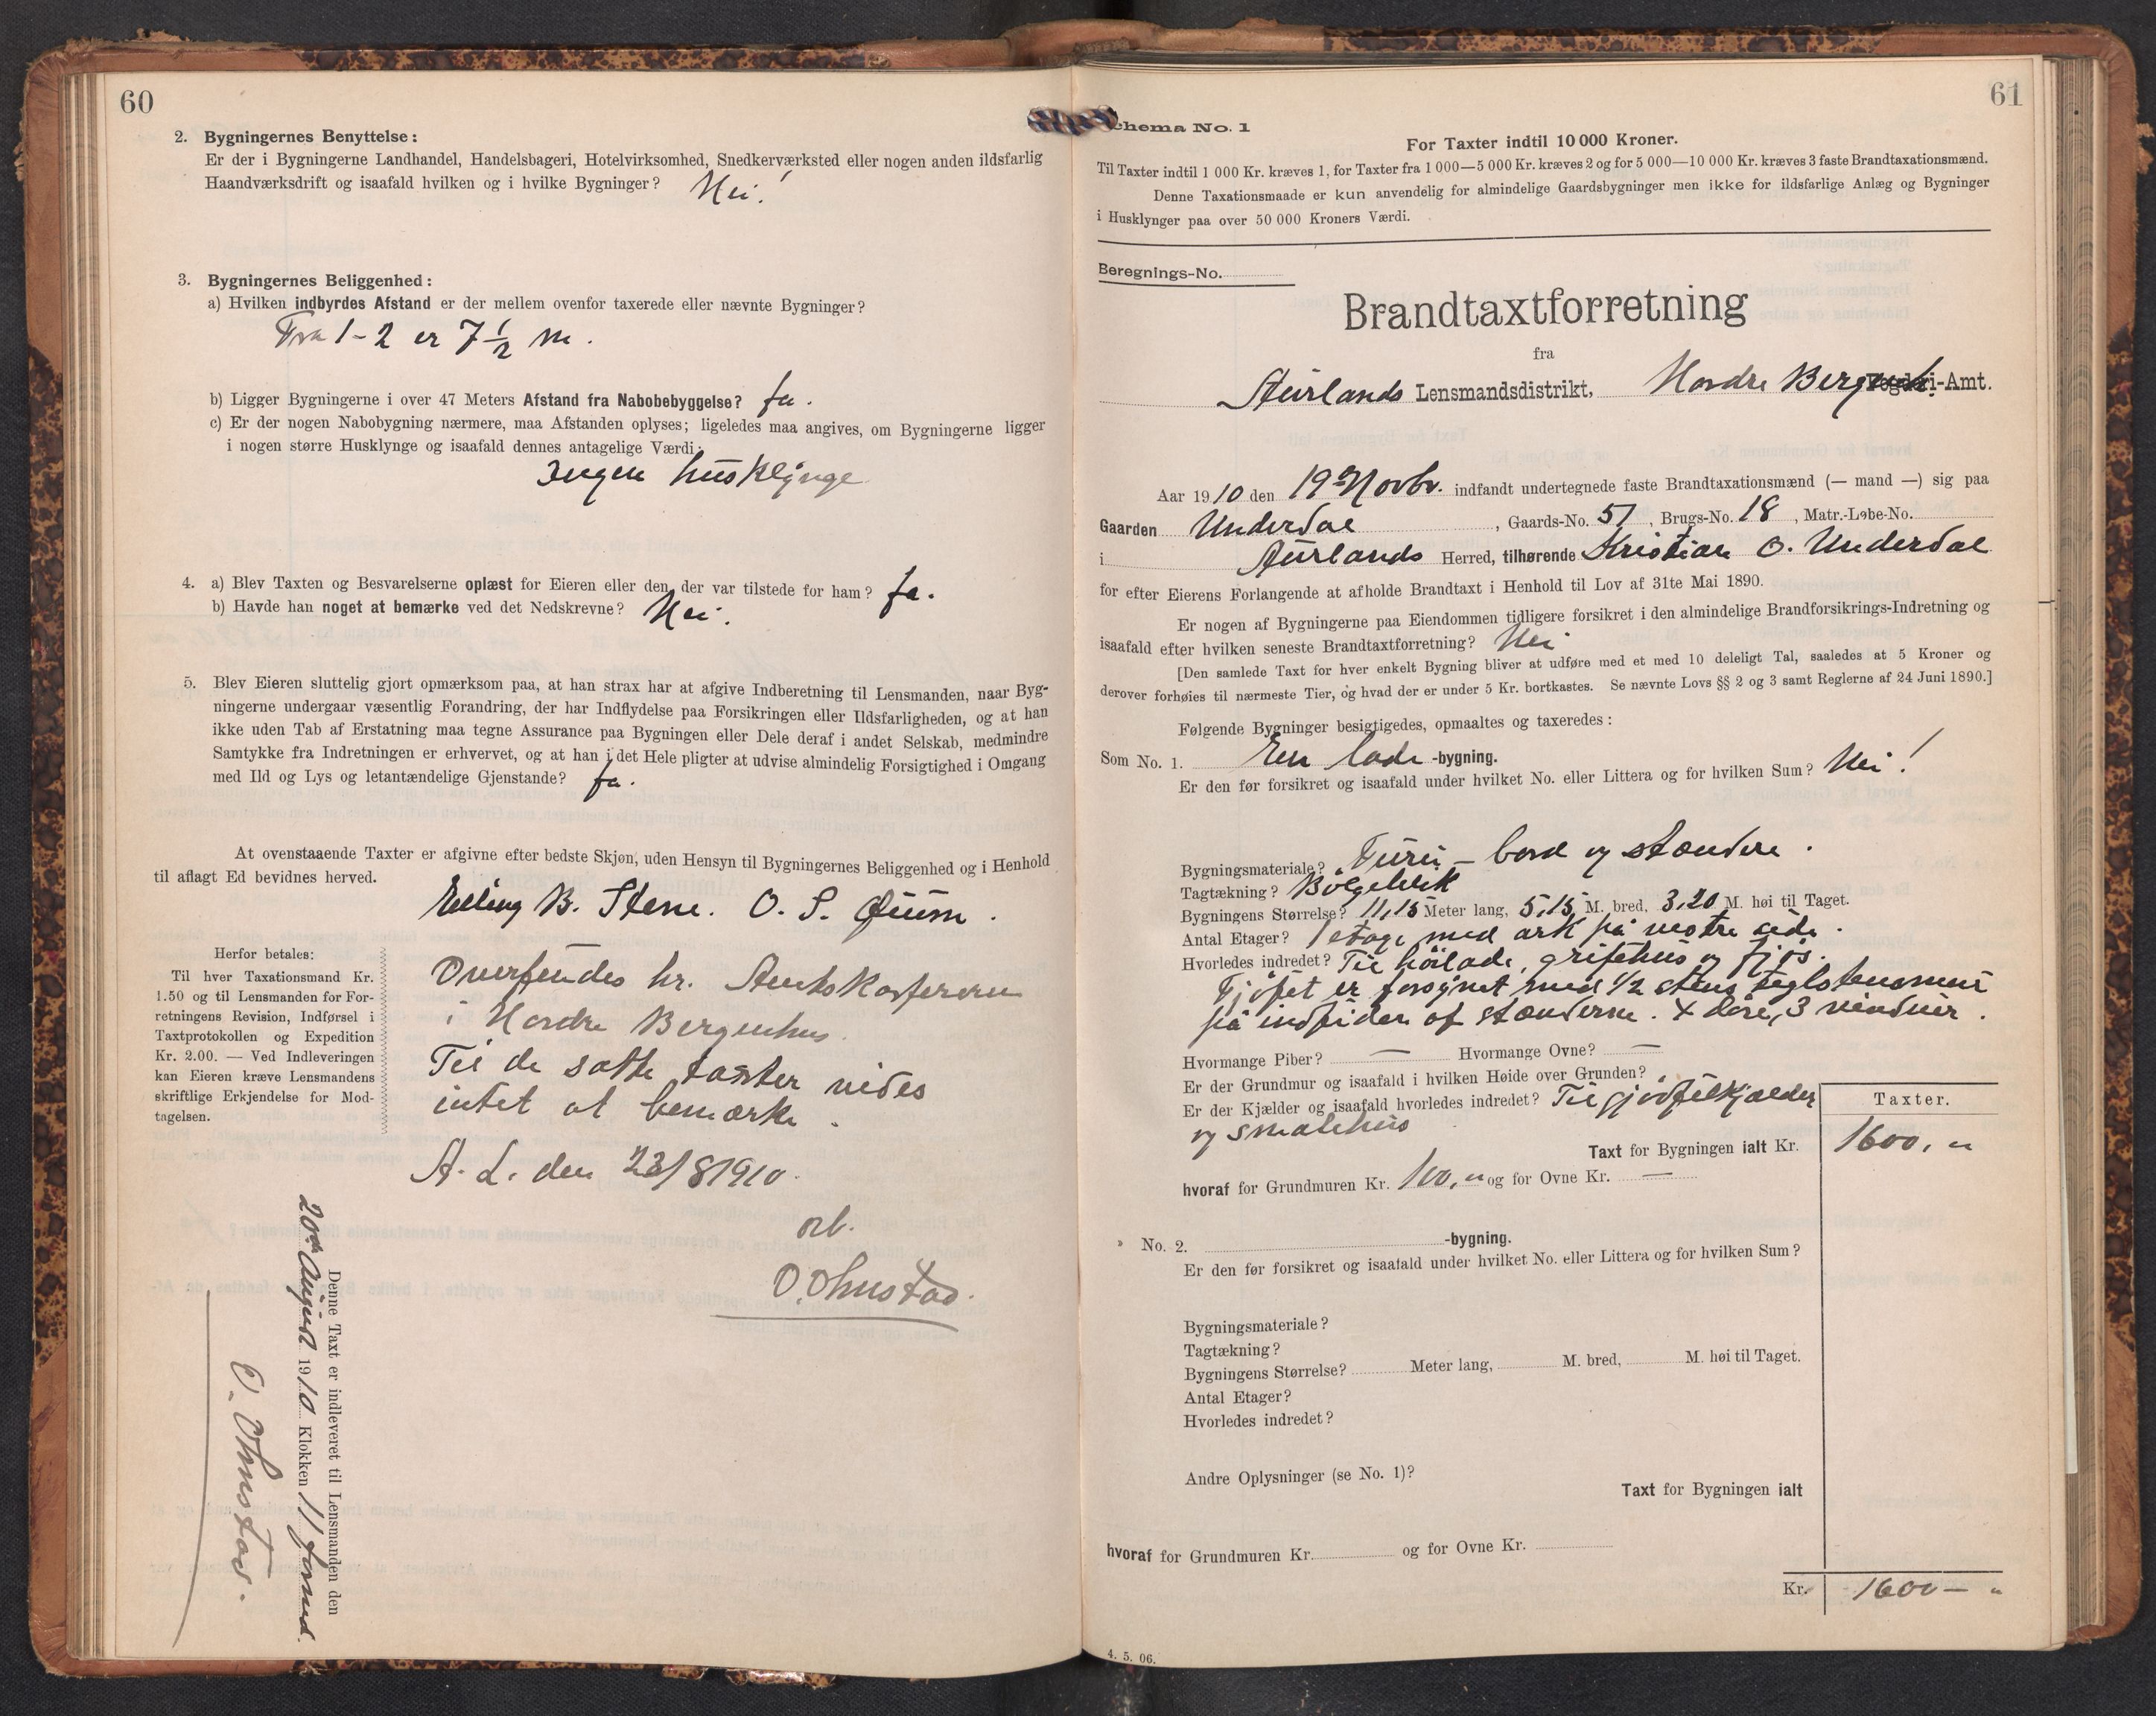 60
2. Bygningernes Benyttelse:
Er der i Bygningerne Landhandel, Handelsbageri, Hotelvirksomhed, Snedkerværksted eller nogen anden ildsfarlig
Haandværksdrift og isaafald hvilken og i hvilke Bygninger? Nei!
3. Bygningernes Beliggenhed:
a) Hvilken indbyrdes Afstand er der mellem ovenfor taxerede eller nævnte Bygninger?
Fra 1-2 er 7 1/2 m.
b) Ligger Bygningerne i over 47 Meters Afstand fra Nabobebyggelse? Ja.
c) Er der nogen Nabobygning nærmere, maa Afstanden oplyses; ligeledes maa angives, om Bygningerne ligger
i nogen større Husklynge og isaafald dennes antagelige Værdi:
Ingen husklynge
4. a) Blev Taxten og Besvarelserne oplæst for Eieren eller den, der var tilstede for ham? Ja.
b) Havde han noget at bemærke ved det Nedskrevne? Nei.
5. Blev Eieren sluttelig gjort opmærksom paa, at han strax har at afgive Indberetning til Lensmanden, naar Byg-
ningerne undergaar væsentlig Forandring, der har Indflydelse paa Forsikringen eller Ildsfarligheden, og at han
ikke uden Tab af Erstatning maa tegne Assurance paa Bygningen eller Dele deraf i andet Selskab, medmindre
Samtykke fra Indretningen er erhvervet, og at han i det Hele pligter at udvise almindelig Forsigtighed i Omgang
med Ild og Lys og letantændelige Gjenstande? Ja.
At ovenstaaende Taxter er afgivne efter bedste Skjøn, uden Hensyn til Bygningernes Beliggenhed og i Henhold
til aflagt Ed bevidnes herved.
Elling B. Stene. O. S. Øium.
Herfor betales:
Til hver Taxationsmand Kr.
1.50 og til Lensmanden for For-
retningens Revision, Indførsel i
Taxtprotokollen og Expedition
Kr. 2.00. — Ved Indleveringen
kan Eieren kræve Lensmandens
skriftlige Erkjendelse for Mod-
tagelsen.
Oversendes hr. Amtskasserern
i Nordre Bergenhus.
Til de satte taxter vides
intet at bemærke.
A. L. den 23/8 1910.
O. Ohnstad.
Denne Taxt er indleveret til Lensmanden den
20de August 1910 Klokken 11 formd.
O. Ohnstad.
61
chema No. 1
For Taxter indtil 10 000 Kroner.
Til Taxter indtil 1 000 Kr. kræves 1, for Taxter fra 1 000—5 000 Kr. kræves 2 og for 5 000—10 000 Kr. kræves 3 faste Brandtaxationsmænd.
Denne Taxationsmaade er kun anvendelig for almindelige Gaardsbygninger men ikke for ildsfarlige Anlæg og Bygninger
i Husklynger paa over 50 000 Kroners Værdi.
Beregnings-No.
Brandtaxtforretning
fra
Aurlands Lensmandsdistrikt, Nordre Bergenh. Fogderi-Amt.
Aar 1910 den 19 Novbr. indfandt undertegnede faste Brandtaxationsmænd (— mand —) sig paa
Gaarden Underdal, Gaards-No. 51, Brugs-No. 18, Matr.-Løbe-No.
i Aurlands Herred, tilhørende Kristian O. Underdal
for efter Eierens Forlangende at afholde Brandtaxt i Henhold til Lov af 31te Mai 1890.
Er nogen af Bygningerne paa Eiendommen tidligere forsikret i den almindelige Brandforsikrings-Indretning og
isaafald efter hvilken seneste Brandtaxtforretning? Nei
[Den samlede Taxt for hver enkelt Bygning bliver at udføre med et med 10 deleligt Tal, saaledes at 5 Kroner og
derover forhøies til nærmeste Tier, og hvad der er under 5 Kr. bortkastes. Se nævnte Lovs §§ 2 og 3 samt Reglerne af 24 Juni 1890.]
Følgende Bygninger besigtigedes, opmaaltes og taxeredes:
Som No. 1. En lade -bygning.
Er den før forsikret og isaafald under hvilket No. eller Littera og for hvilken Sum? Nei!
Bygningsmateriale? Furu - bord og stændere.
Tagtækning? Bölgeblik
Bygningens Størrelse? 11,15 Meter lang, 5,15 M. bred, 3,20 M. høi til Taget.
Antal Etager? 1 etage med ark på vestre side.
Hvorledes indredet? Til hölade, grisehus og fjøs.
Fjöset er forsynet med 1/2 stens teglstensmur
på indsiden af stænderne. 4 döre, 3 vinduer.
Hvormange Piber? — Hvormange Ovne? —
Er der Grundmur og isaafald i hvilken Høide over Grunden?
Er der Kjælder og isaafald hvorledes indredet? Til gjödselkjælder
og smalehus
Taxter.
Taxt for Bygningen ialt Kr. 1600, "
hvoraf for Grundmuren Kr. 100, " og for Ovne Kr. —
No. 2. -bygning.
Er den før forsikret og isaafald under hvilket No. eller Littera og for hvilken Sum?
Bygningsmateriale?
Tagtækning?
Bygningens Størrelse? Meter lang, M. bred, M. høi til Taget.
Antal Etager?
Hvorledes indredet?
Andre Oplysninger (se No. 1)?
Taxt for Bygningen ialt
hvoraf for Grundmuren Kr. og for Ovne Kr.
Kr. 1600 — "
4. 5. 06.